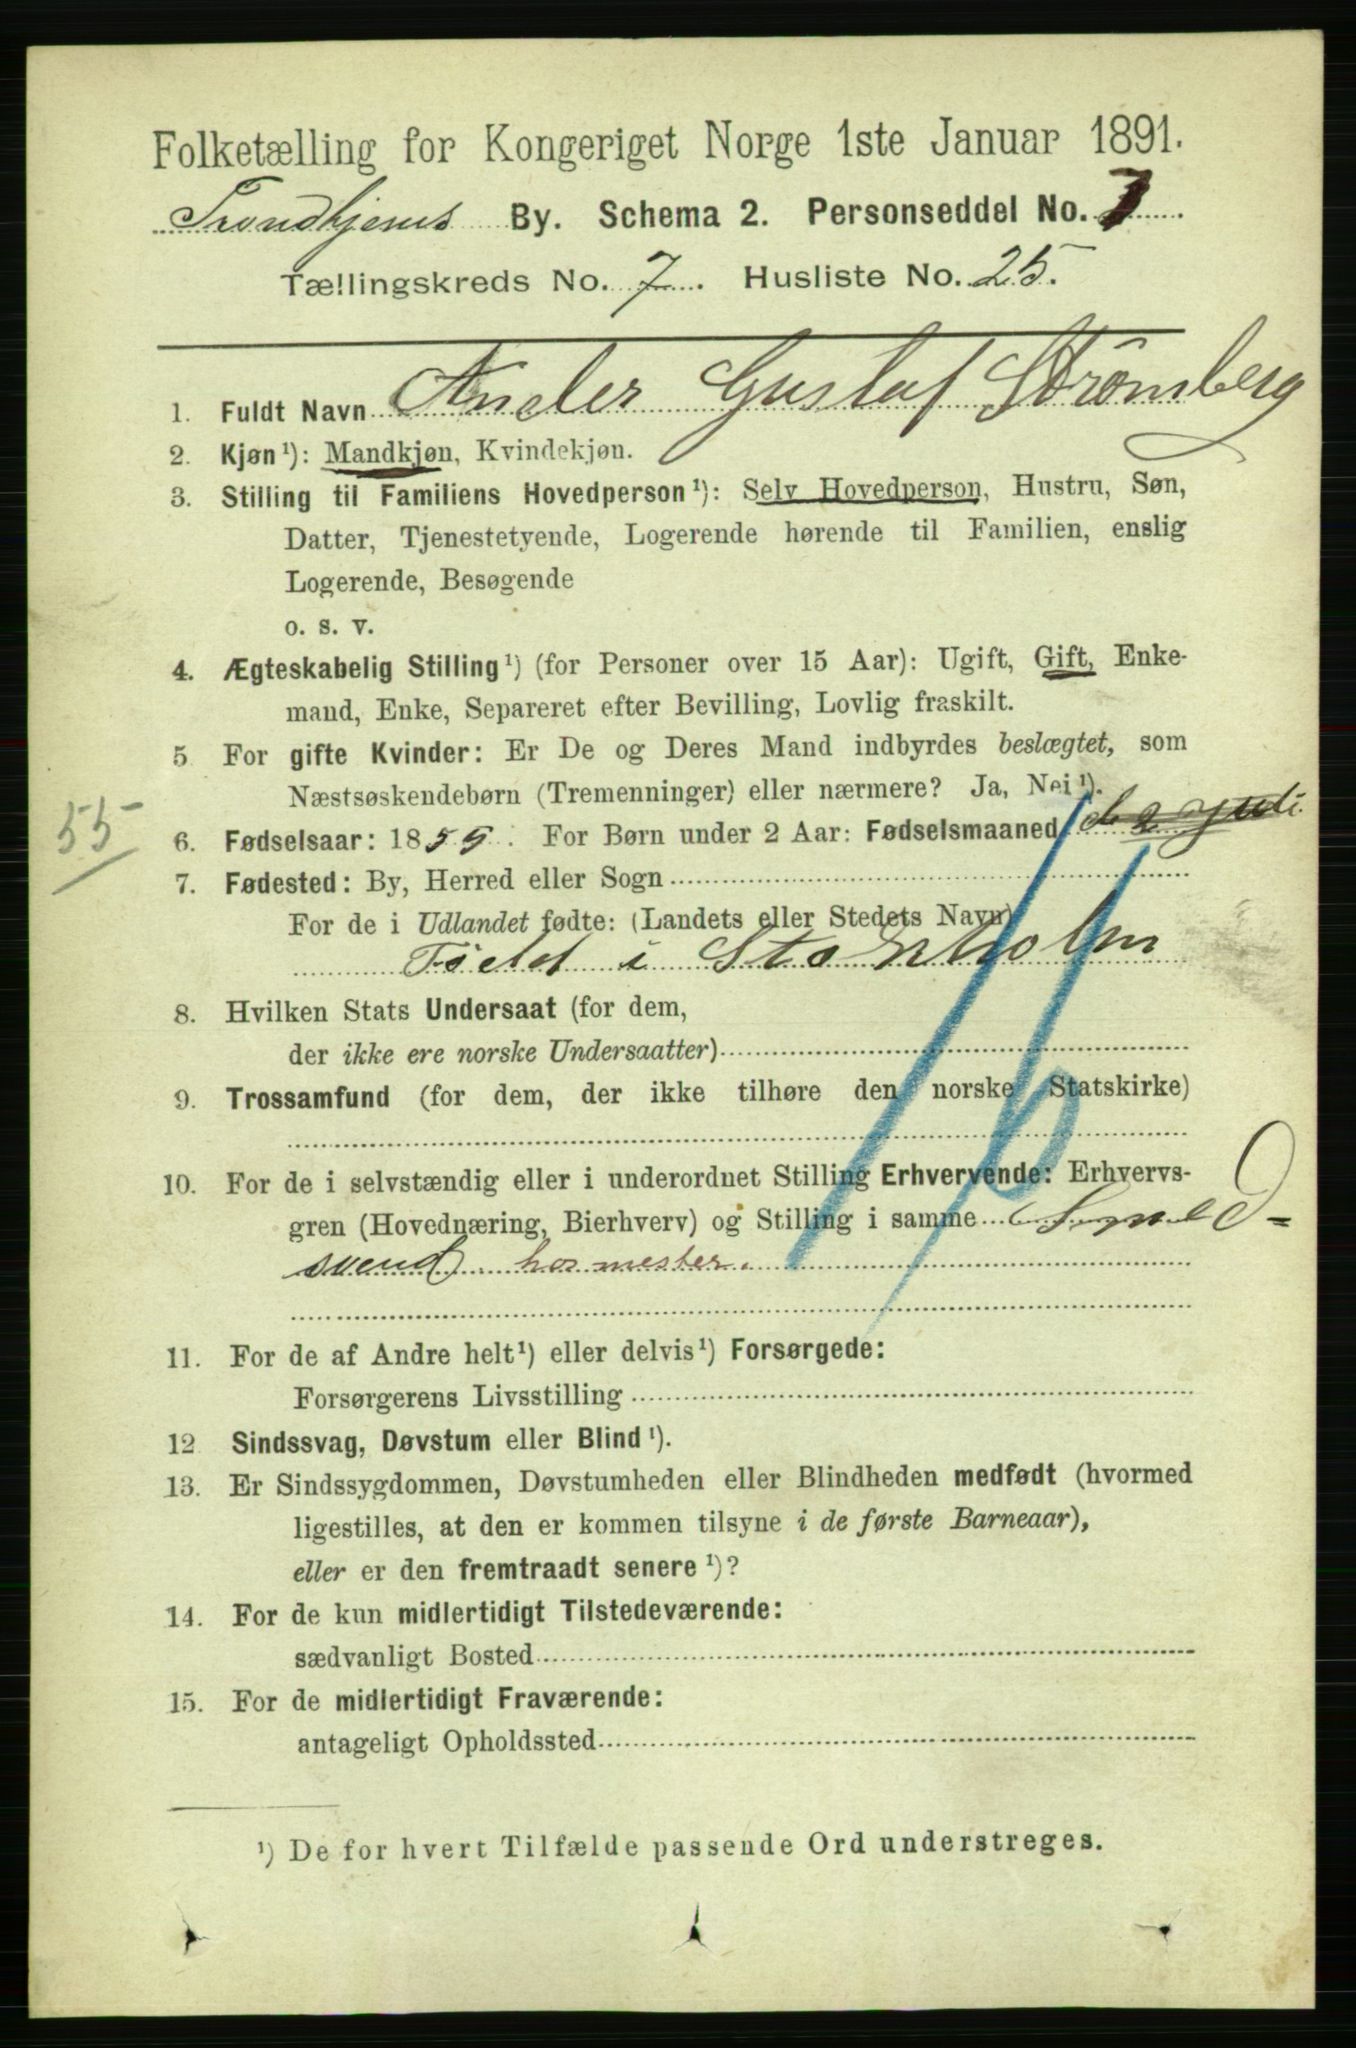 Folketælling for Kongeriget Norge 1ste Januar 1891.
Trondhjems By. Schema 2. Personseddel No. 1.
Tællingskreds No. 7. Husliste No. 25.
1. Fuldt Navn Ander Gustaf Strömberg
2. Kjøn¹): Mandkjøn, Kvindekjøn.
3. Stilling til Familiens Hovedperson¹): Selv Hovedperson, Hustru, Søn,
Datter, Tjenestetyende, Logerende hørende til Familien, enslig
Logerende, Besøgende
o. s. v.
4. Ægteskabelig Stilling¹) (for Personer over 15 Aar): Ugift, Gift, Enke-
mand, Enke, Separeret efter Bevilling, Lovlig fraskilt.
5 For gifte Kvinder: Er De og Deres Mand indbyrdes beslægtet, som
Næstsøskendebørn (Tremenninger) eller nærmere? Ja, Nei¹).
55
6. Fødselsaar: 1855. For Børn under 2 Aar: Fødselsmaaned
7. Fødested: By, Herred eller Sogn
For de i Udlandet fødte: (Landets eller Stedets Navn)
Föld i Stokholm
8. Hvilken Stats Undersaat (for dem,
der ikke ere norske Undersaatter)
9. Trossamfund (for dem, der ikke tilhøre den norske Statskirke)
10. For de i selvstændig eller i underordnet Stilling Erhvervende: Erhvervs-
gren (Hovednæring, Bierhverv) og Stilling i samme Smed=
svend hos mester.
11. For de af Andre helt¹) eller delvis¹) Forsørgede:
Forsørgerens Livsstilling
12 Sindssvag, Døvstum eller Blind¹).
13. Er Sindssygdommen, Døvstumheden eller Blindheden medfødt (hvormed
ligestilles, at den er kommen tilsyne i de første Barneaar),
eller er den fremtraadt senere¹)?
14. For de kun midlertidigt Tilstedeværende:
sædvanligt Bosted
15. For de midlertidigt Fraværende:
antageligt Opholdssted
¹) De for hvert Tilfælde passende Ord understreges.